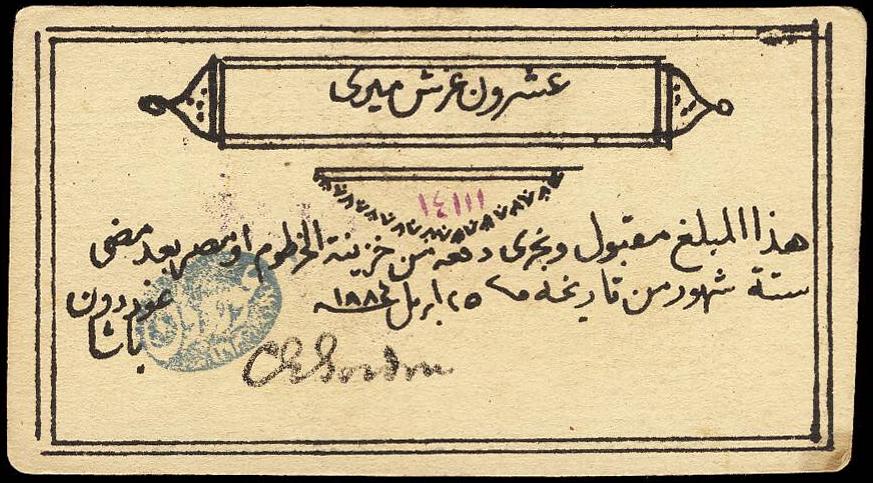 عشرون غرش ميرى
١٤١١١
هذا المبلغ مقبول ويجرى دفعه من خزينة الخرطوم او مصر بعد مضى
ستة شهور من تاريخه ٢٥ ابريل ١٨٨٤ـنه
غوردون
باشا
C E Gordon